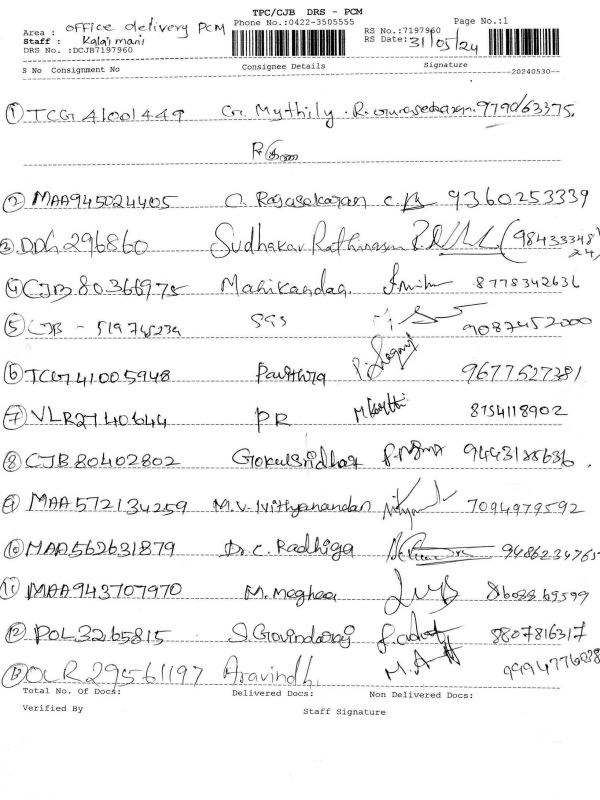 TPC/CJB DRS - PCM
Area : office delivery PCM Phone No.:0422-3505555 Page No.:1
Staff : Kalaimani RS No.:7197960
DRS No. :DCJB7197960 RS Date: 31/05/24
S No Consignment No Consignee Details Signature
20240530
① TCG41001449 G. Mythily . R. Gurusedaran. 9790163375.
② MAA945024405 C. Rajasekaran 9360253339
③ DDG296860 Sudhakar Rathinasam (9843334824)
④ CJB 80366975 Manikandan. 8778342636
⑤ CJB - 519745234 SGS 9087452000
⑥ TCG41005948 Pavithra 9677527381
⑦ VLR27140644 PR M. Karthi 8754118902
⑧ CJB80402802 Gokulsridhar 9443188636.
⑨ MAA572134259 M.V. Nithyanandan 7094979592
⑩ MAA562631879 Dr. C. Radhiga 9486234765
⑪ MAA943707970 M. Meghaa
⑫ POL3265815 S. Govindaraj 8807816317
⑬ OLR295561197 Aravindh. 9994776038
Total No. Of Docs: Delivered Docs: Non Delivered Docs:
Verified By Staff Signature